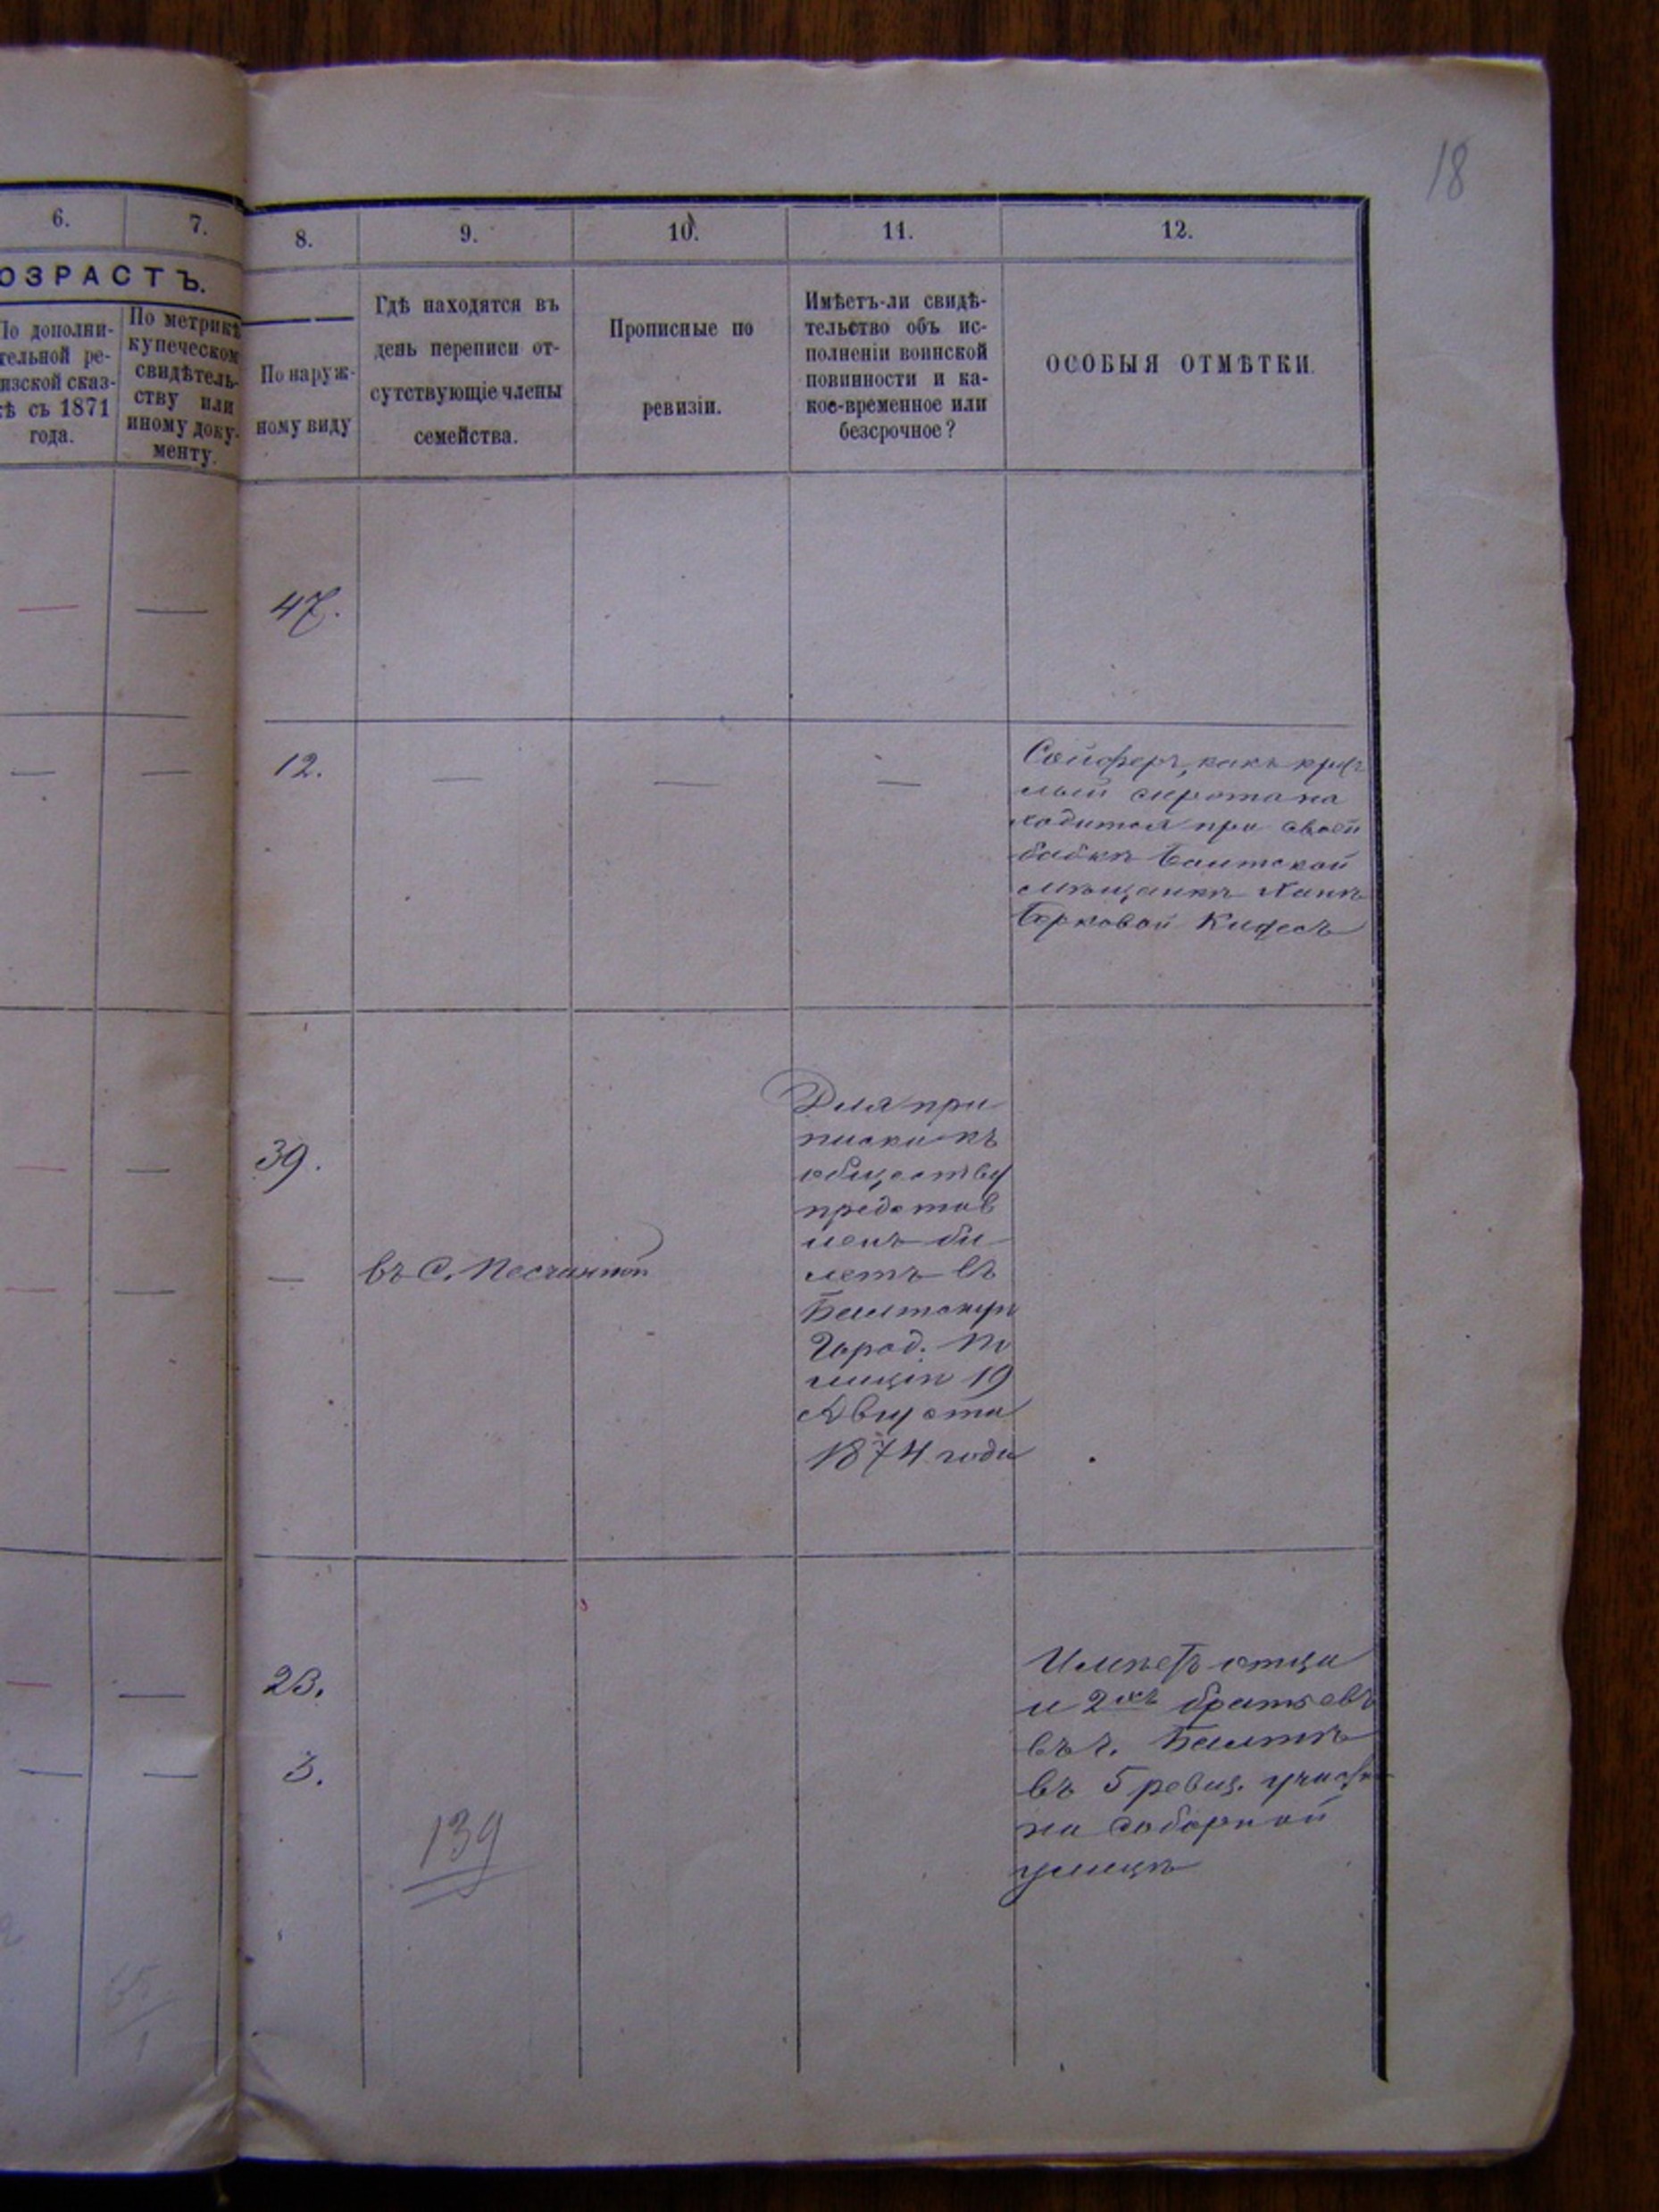 18
6. 7. 8. 9. 10. 11. 12.
ОЗРАСТЪ.
По дополни-
тельной ре-
изской сказ-
кѣ съ 1871
года.
По метрикѣ
купеческом
свидѣтель-
ству или
иному доку-
менту.
По наруж-
ному виду
Гдѣ находятся въ
день переписи от-
сутствующіе члены
семейства.
Прописные по
ревизіи.
Имѣетъ-ли свидѣ-
тельство объ ис-
полненіи воинской
повинности и ка-
кое-временное или
безсрочное?
ОСОБЫЯ ОТМѢТКИ.
47.
12.
Сойферъ, какъ круг
лый сирота на
ходится при своей
бабкѣ Балтской
мѣщанкѣ Ханѣ
Берковой
39.
въ С. Песчанной
Для при
писки къ
обществу
представ
ленъ би
летъ въ
Балтскую
Город. По
лицію 19
Августа
1874 года
23.
3.
139
Имѣетъ отца
и 2хъ братьевъ
въ г. Балтѣ
въ 5 ревиз. участкѣ
на соборной
улицѣ